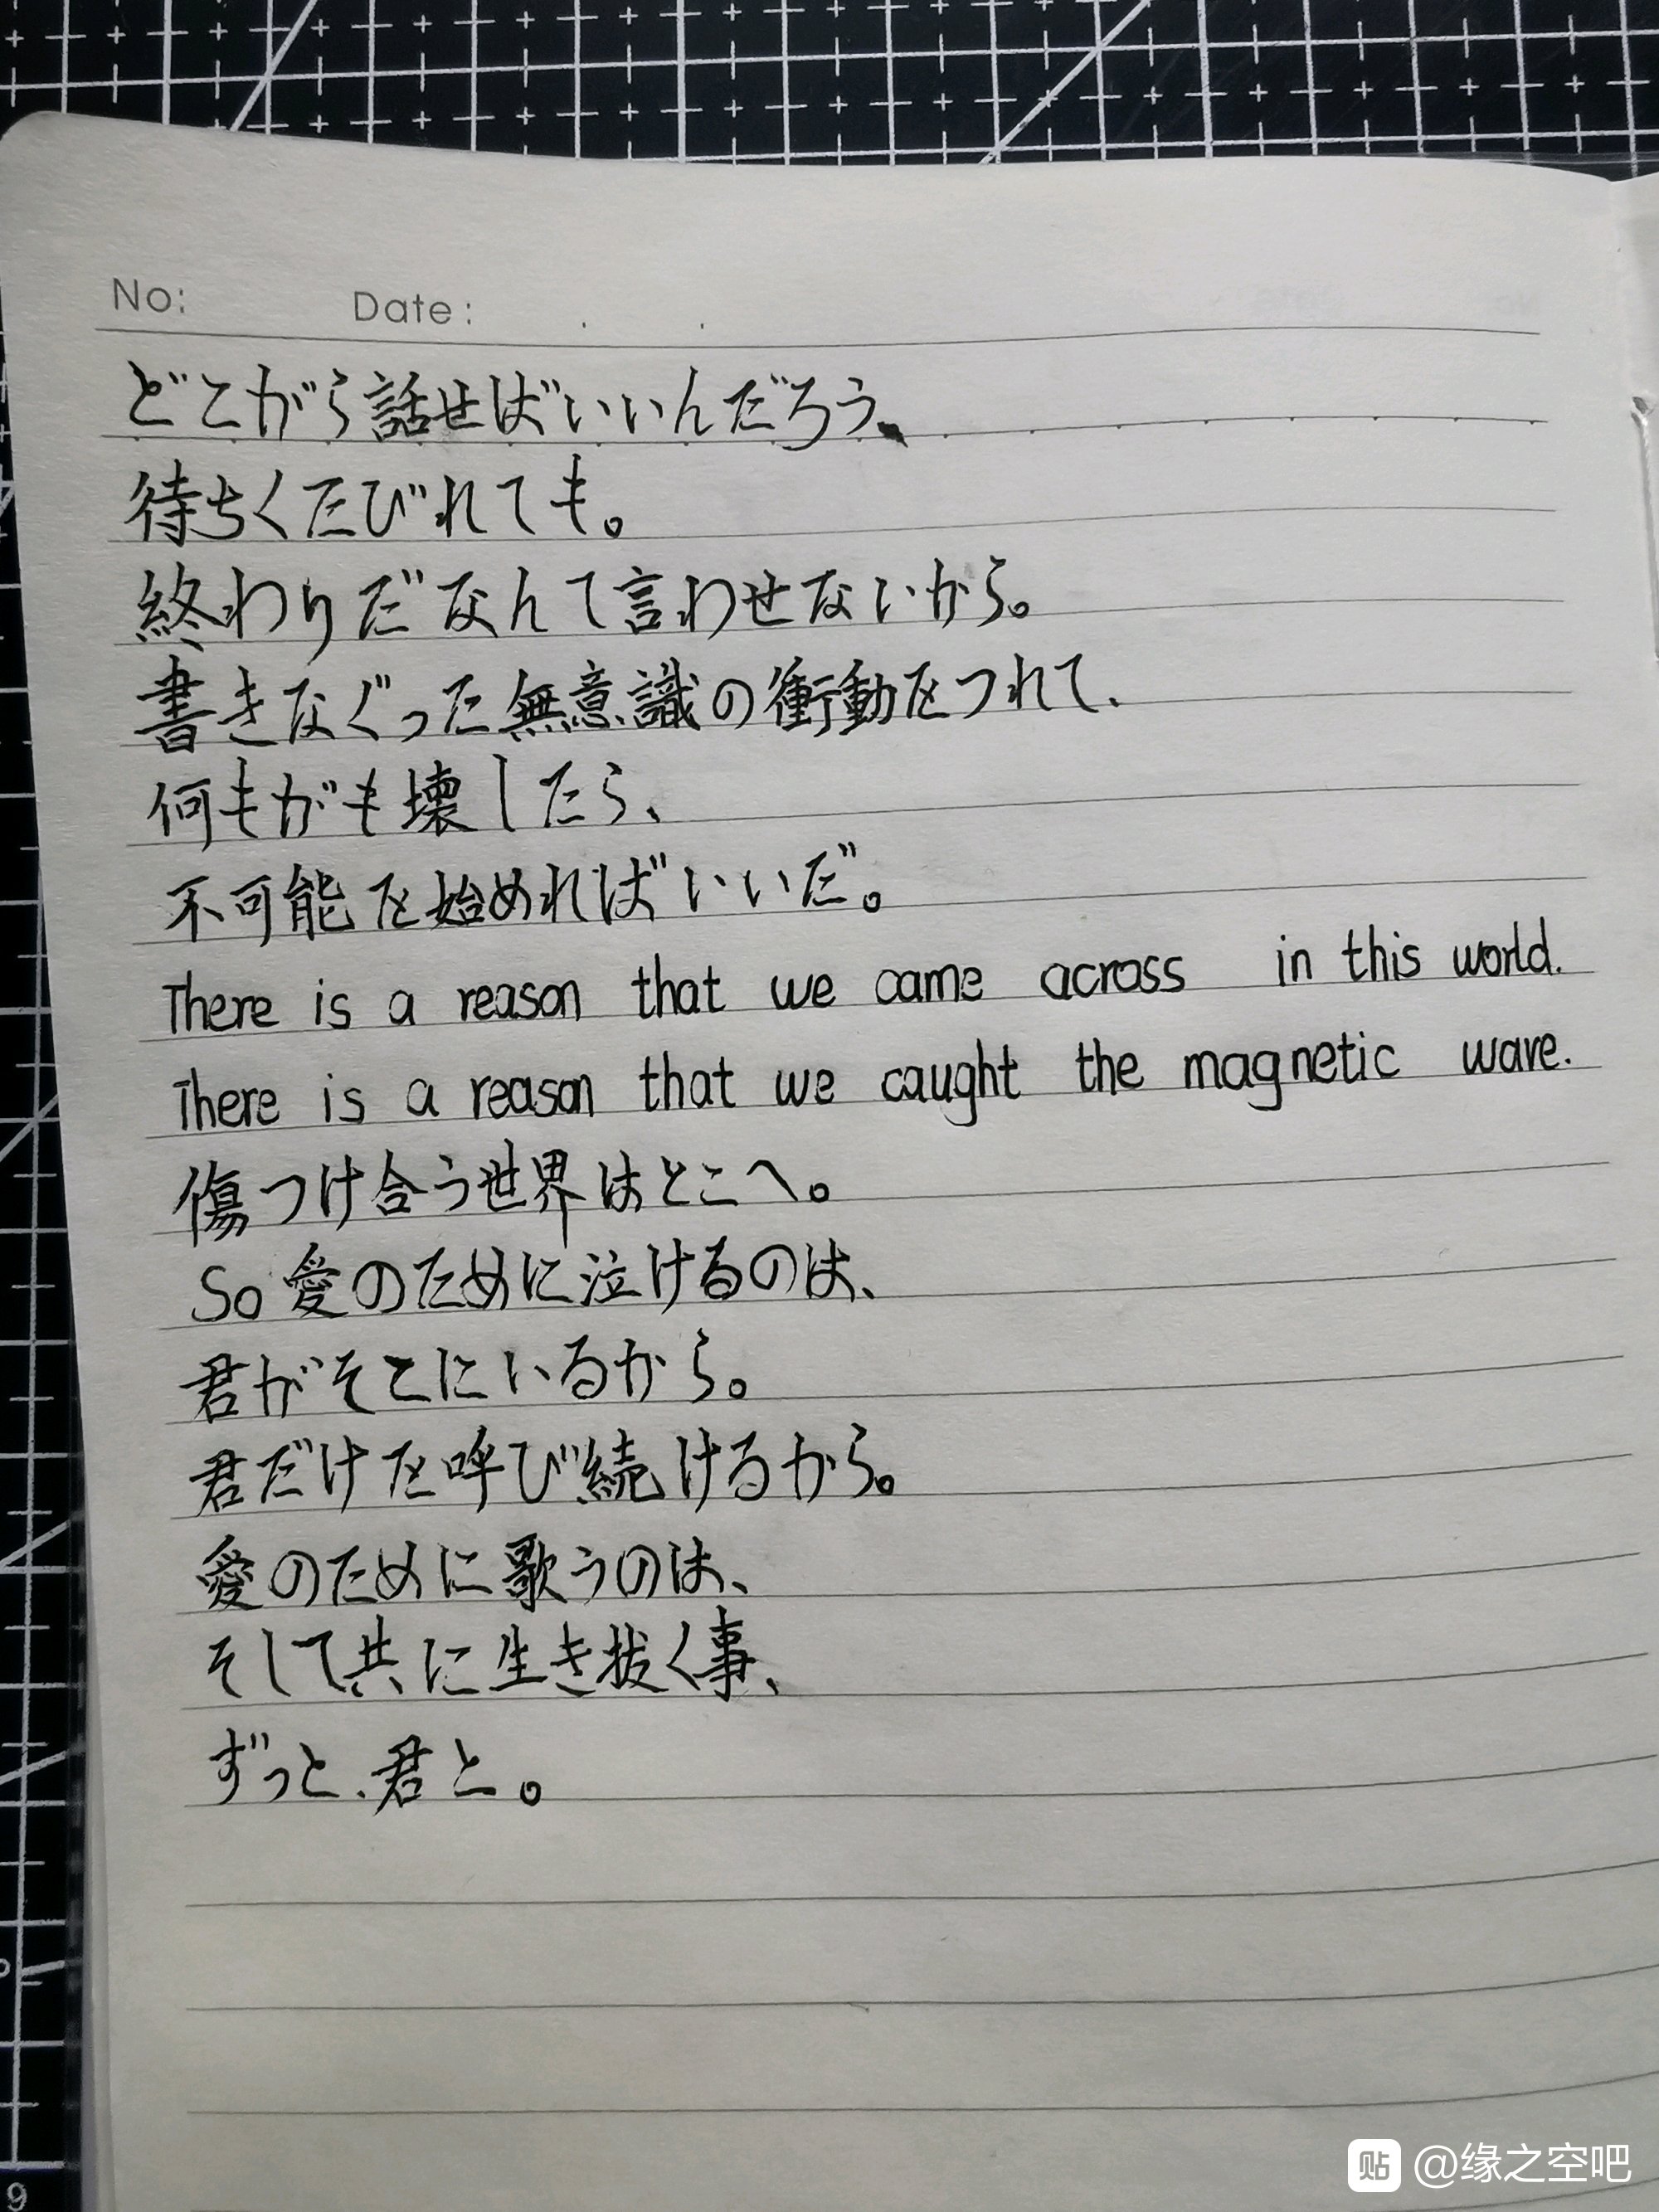 No: Date: . .
どこがら話せばいいんだろう、
待ちくたびれても。
終わりだなんて言わせないから。
書きなぐった無意識の衝動をつれて、
何もがも壊したら、
不可能を始めればいいだ。
There is a reason that we came across in this world.
There is a reason that we caught the magnetic wave.
傷つけ合う世界はとこへ。
So 愛のために泣けるのは、
君がそこにいるから。
君だけを呼び続けるから。
愛のために歌うのは、
そして共に生き抜く事、
ずっと、君と。
9
贴 @缘之空吧